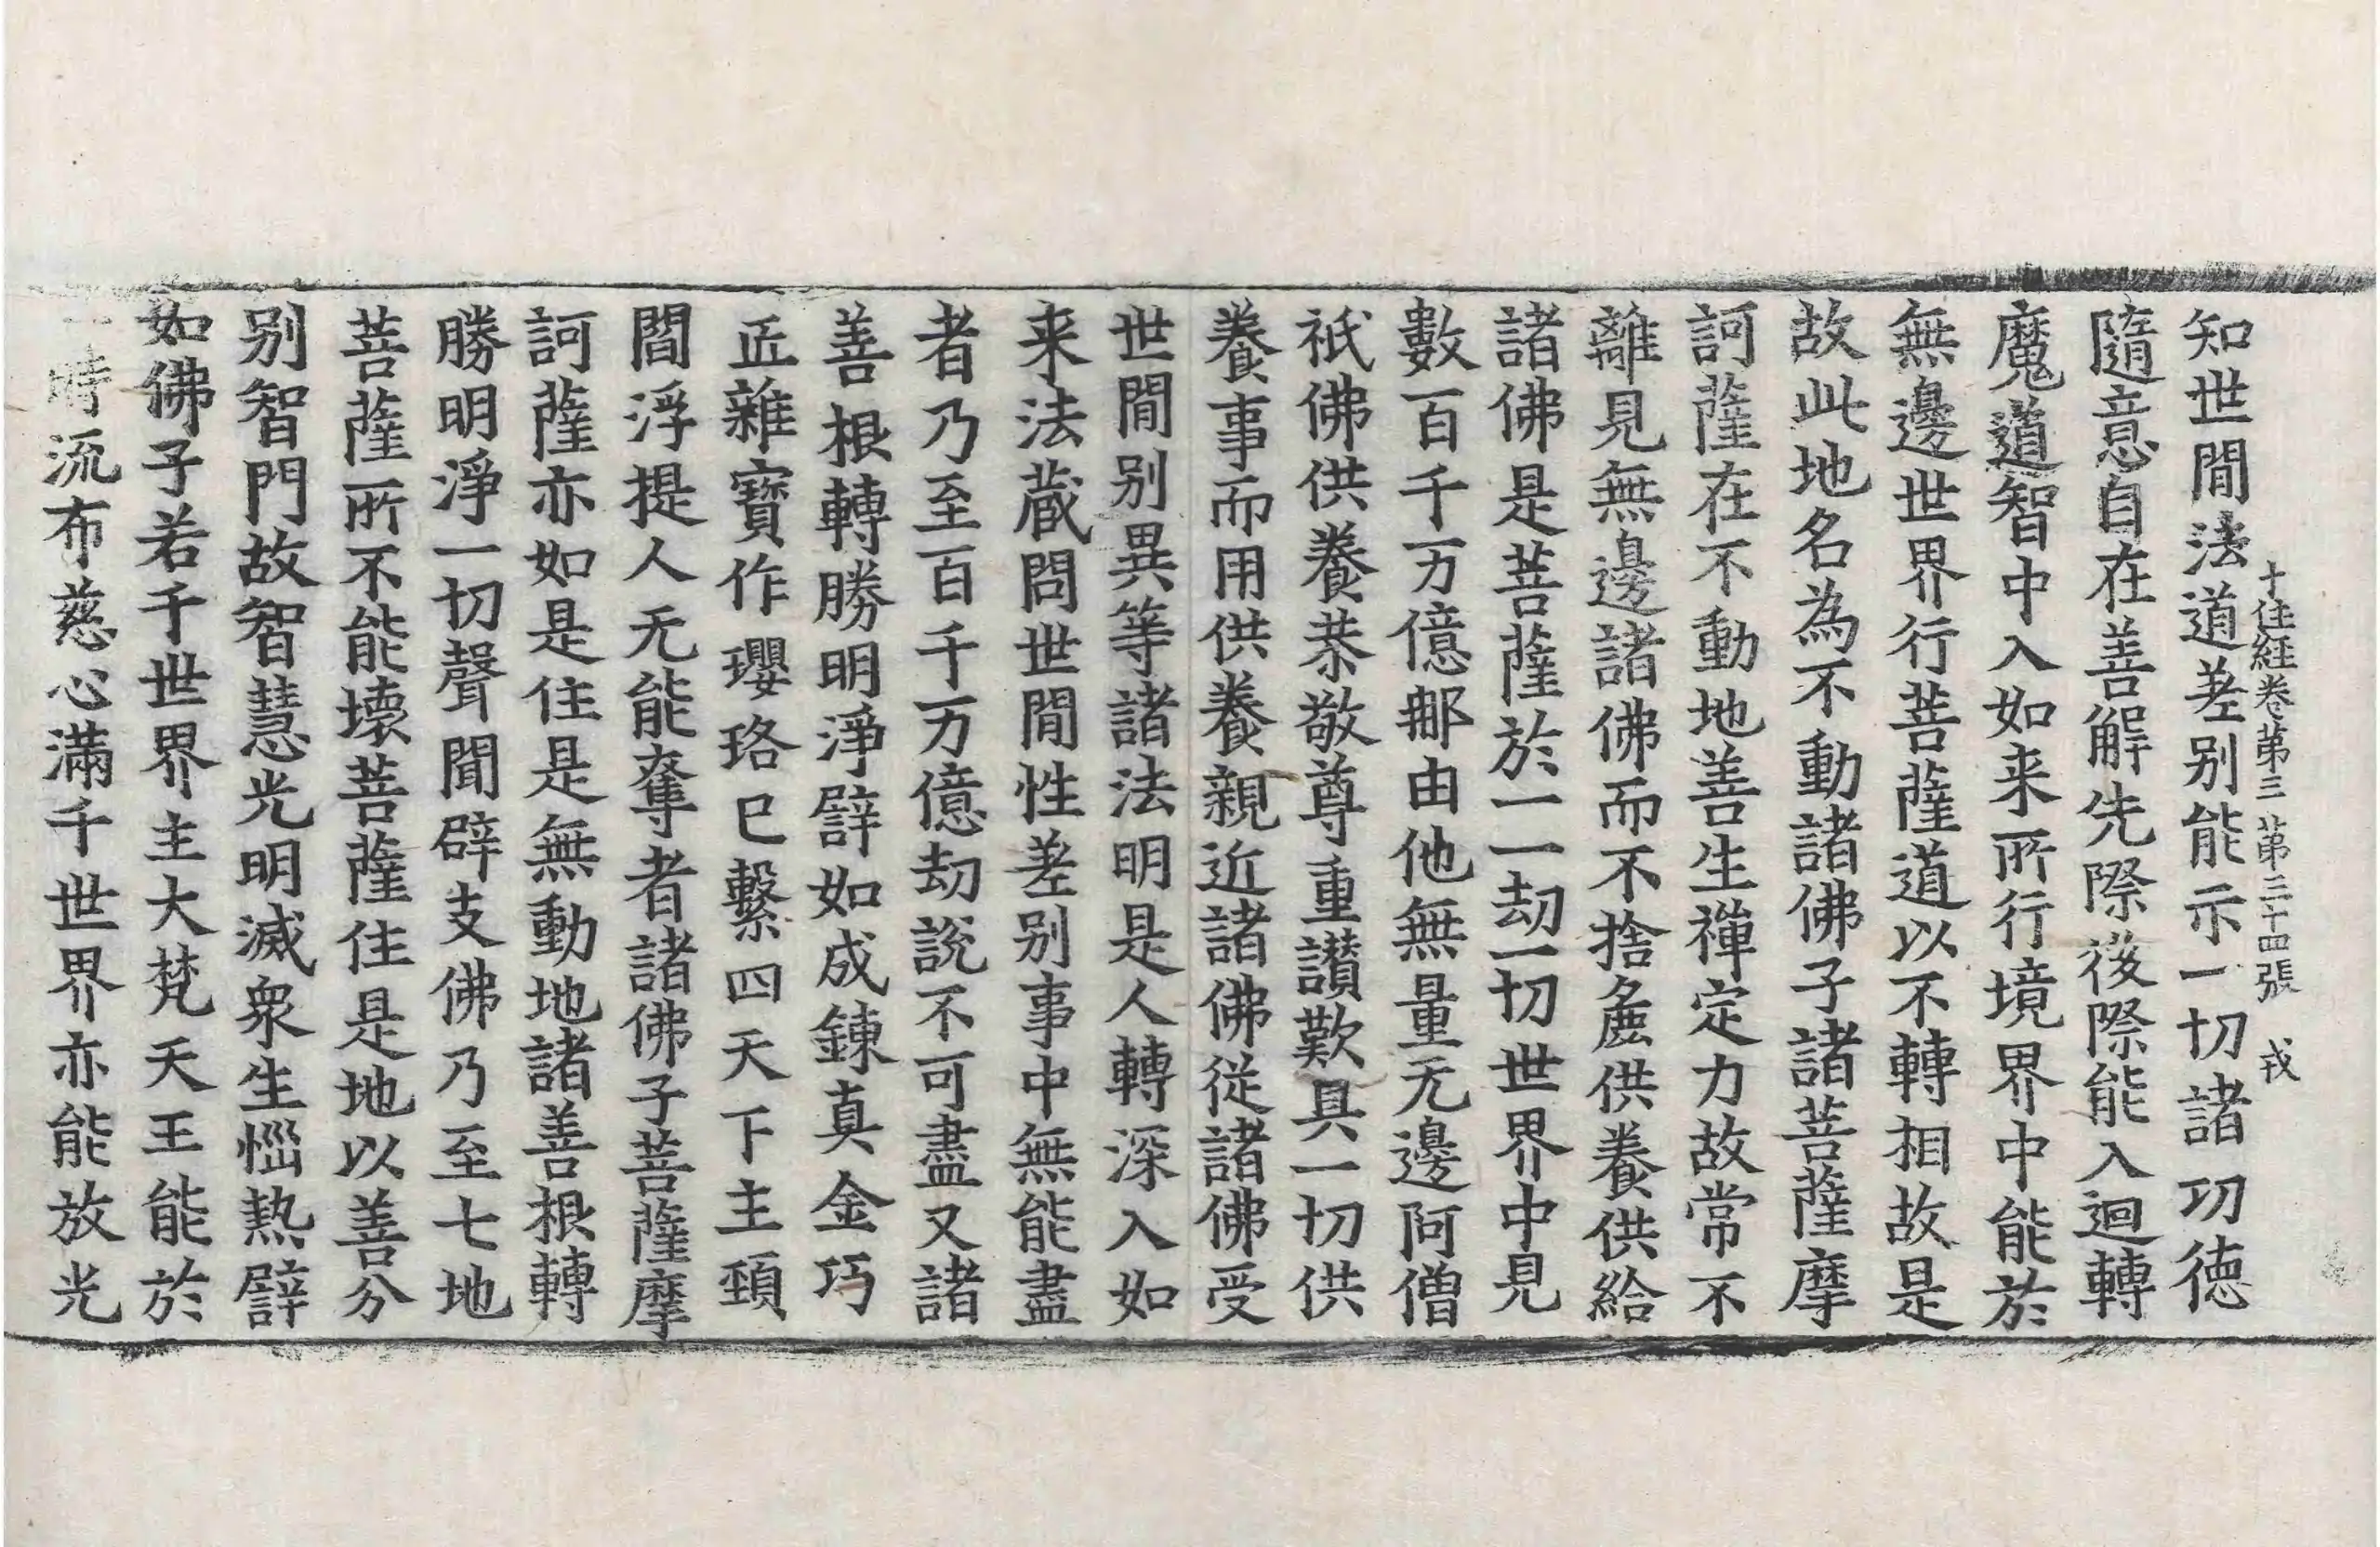 十住經卷第三　第三十四張　戎
知世間法道差别能示一切諸功德
隨意自在善解先際後際能入迴轉
魔道智中入如来所行境界中能於
無邊世界行菩薩道以不轉相故是
故此地名為不動諸佛子諸菩薩摩
訶薩在不動地善生禪定力故常不
離見無邊諸佛而不捨麁供養供給
諸佛是菩薩於一一劫一切世界中見
數百千万億那由他無量无邊阿僧
祇佛供養恭敬尊重讃歎具一切供
養事而用供養親近諸佛從諸佛受
世間别異等諸法明是人轉深入如
来法蔵問世間性差别事中無能盡
者乃至百千万億劫説不可盡又諸
善根轉勝明淨譬如成鍊真金巧
匠雜寶作瓔珞已繫四天下主頚
閻浮提人无能奪者諸佛子菩薩摩
訶薩亦如是住是無動地諸善根轉
勝明淨一切聲聞辟支佛乃至七地
菩薩所不能壞菩薩住是地以善分
别智門故智慧光明滅衆生惱熱譬
如佛子若千世界主大梵天王能於
一時流布慈心滿千世界亦能放光